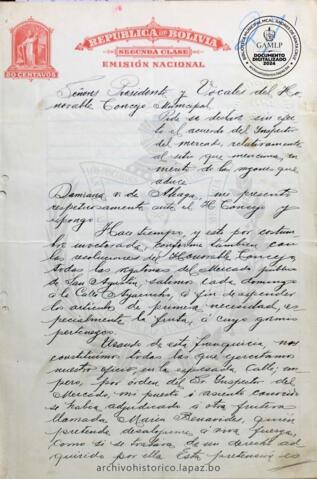 REPUBLICA DE BOLIVIA
SEGUNDA CLASE
EMISIÓN NACIONAL
50 CENTAVOS
GAMLP
DOCUMENTO
DIGITALIZADO
2024
Señores Presidente y Vocales del Ho-
norable Concejo Municipal
Pide se declare sin efec-
to el acuerdo del Inspector
del mercado, relativamente
al sitio que menciona, en
mérito de las razones que
aduce
Damiana v. de Aliaga, me presento
respetuosamente ante el H. Concejo y
expongo
Hace tiempo, y esto por costum-
bre inveterada, conforme también con
las resoluciones del Honorable Concejo,
todas las del Mercado público
de San Agustín, salimos cada domingo
a la Calle Ayacucho, á fin de expender
los artículos de primera necesidad, es-
pecialmente la fruta, á cuyo gremio
pertenezco
Usando de esta franquicia, nos
constituimos todas las que ejercitamos
nuestro oficio, en la expresada Calle; em-
pero, por órden del Sr. Inspector del
Mercado, mi puesto ó asiento conocido
se había adjudicado á otra frutera
llamada María Benavides, quien
pretende desalojarme á viva fuerza,
como si se tratara de un derecho ad-
quirido por ella. Esta pretensión es
archivohistorico.lapaz.bo